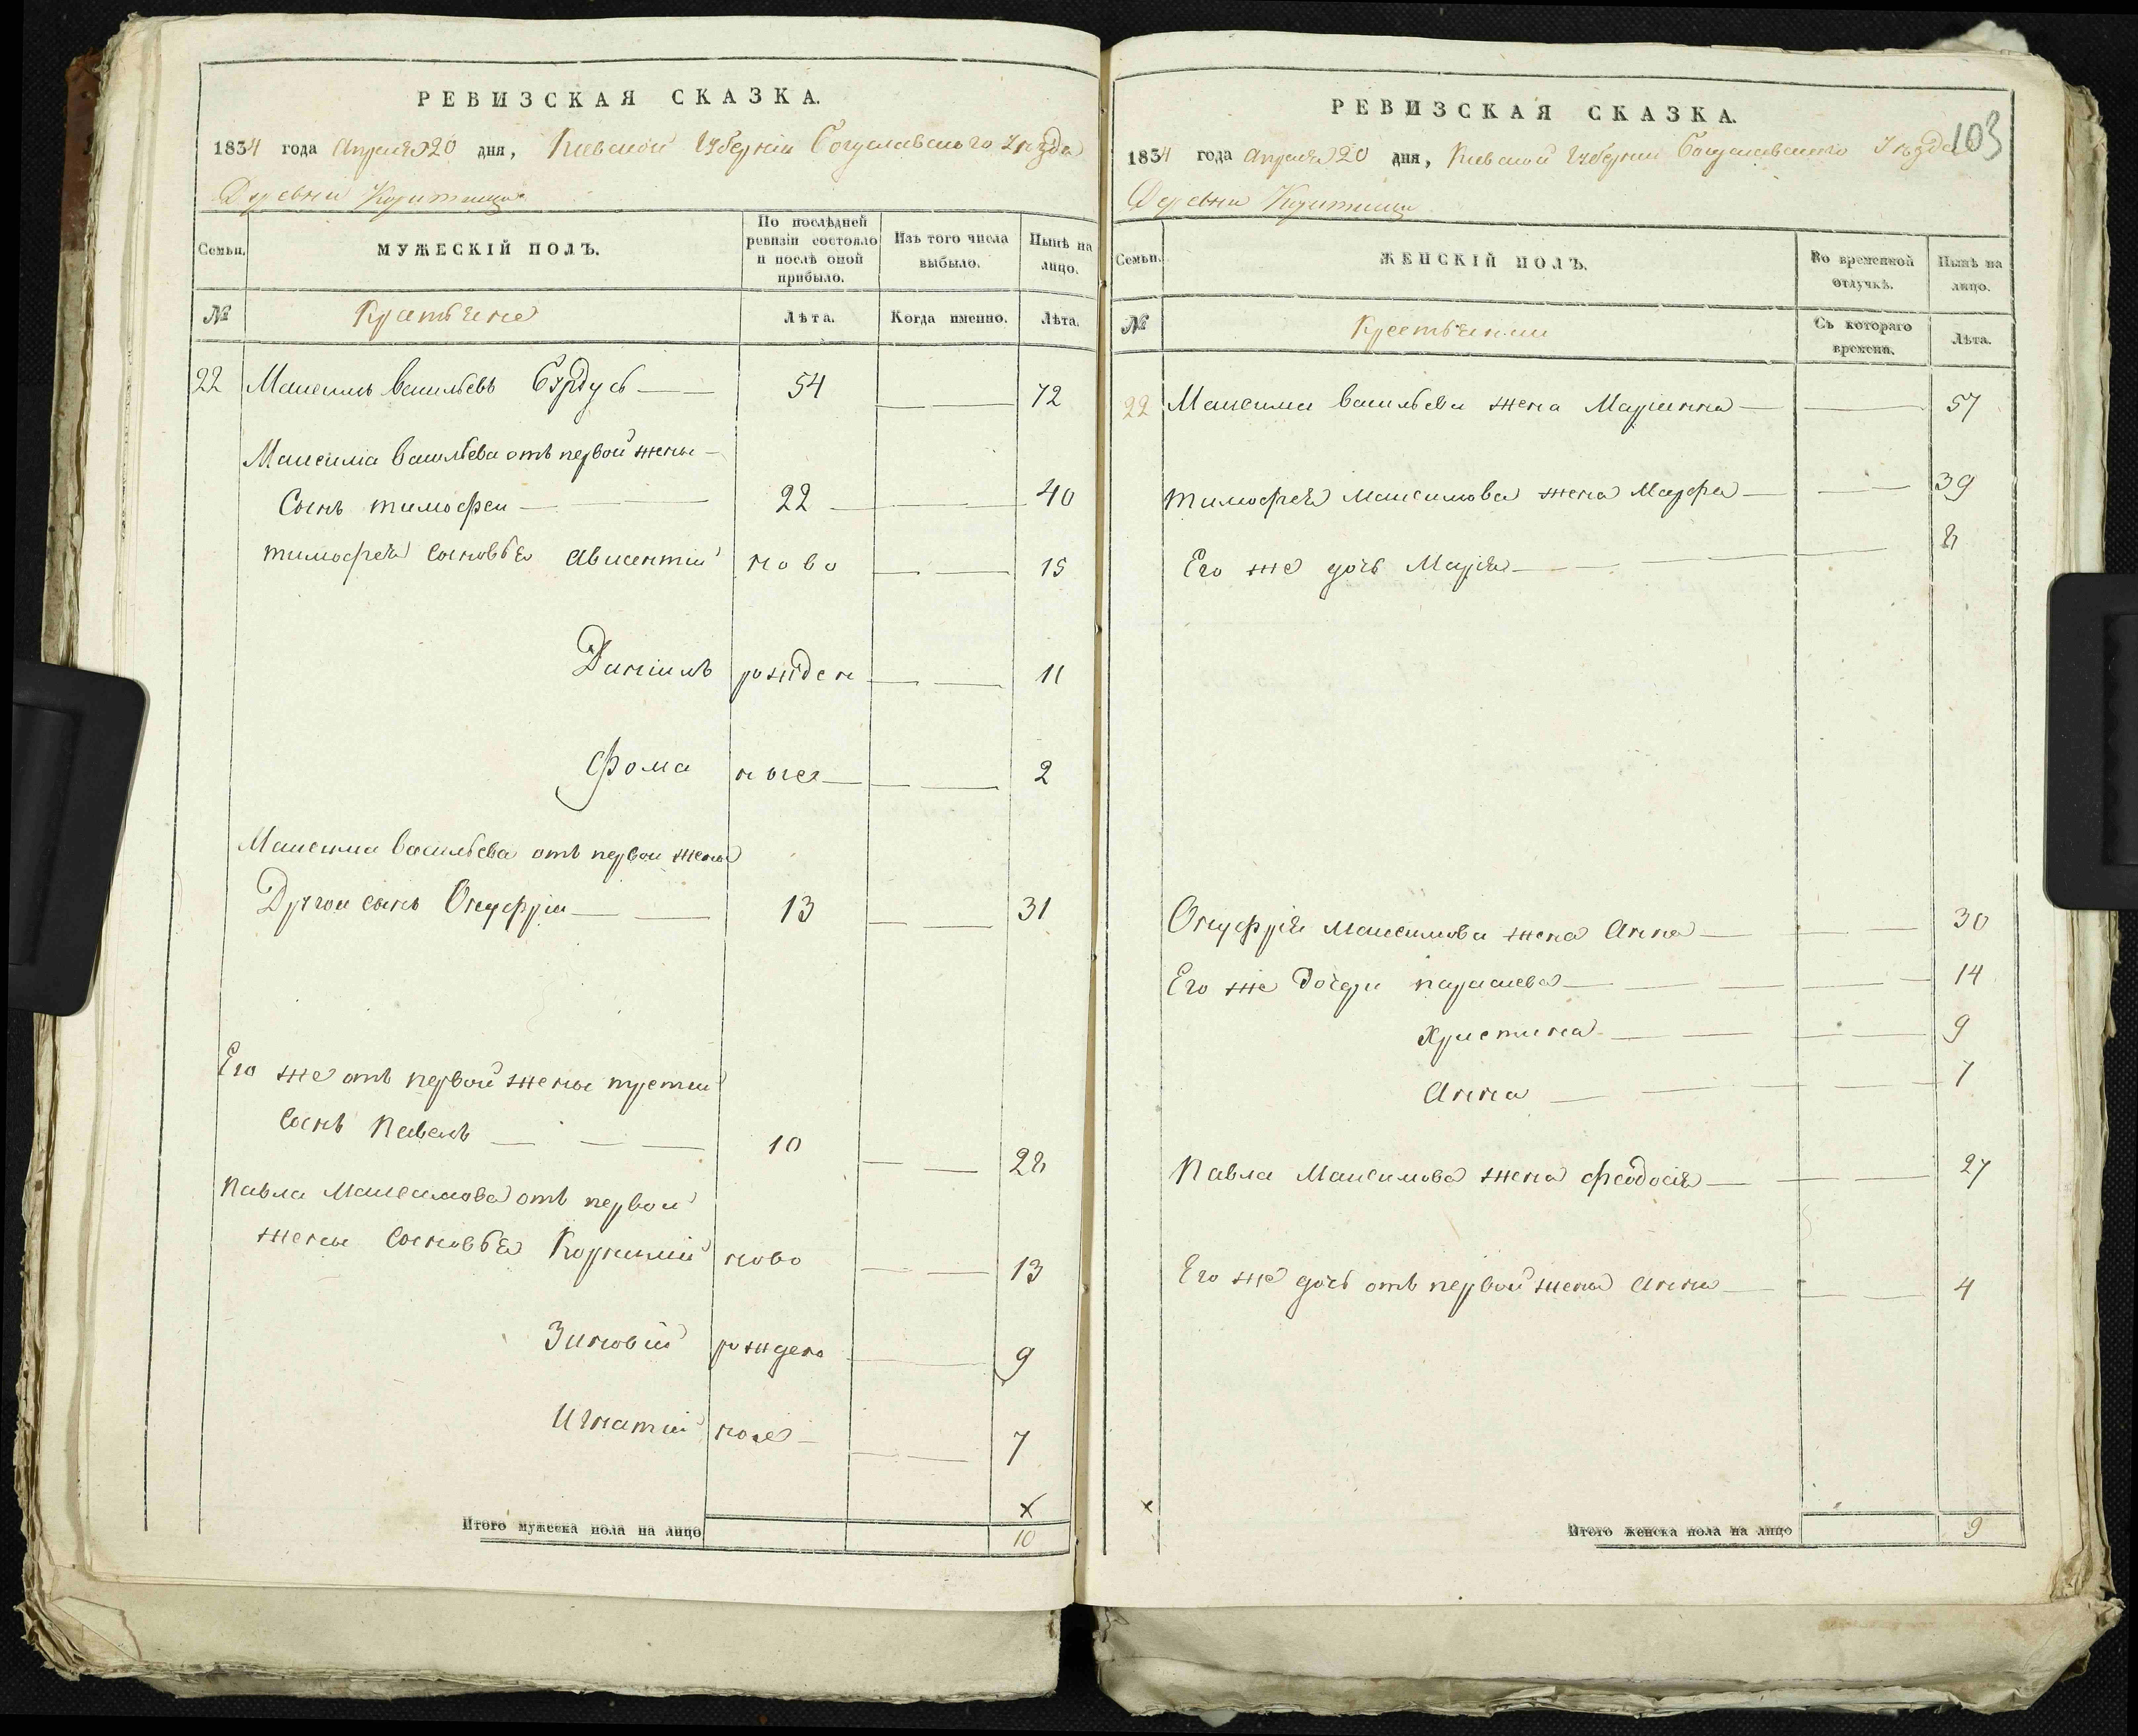 РЕВИЗСКАЯ СКАЗКА.
1834 года Апреля 20 дня, Киевской Губерніи Богуславского Уѣзда
Деревни
Семьи.
МУЖЕСКІЙ ПОЛЪ.
По послѣдней ревизіи состояло и послѣ оной прибыло.
Изъ того числа выбыло.
Нынѣ на лицо.
№
Крестьяне
Лѣта.
Когда именно.
Лѣта.
22 Максимъ Васильевъ Бурдусь 54 72
Максима Васильева отъ первой жены
Сынъ тимофеи 22 40
тимофея сыновья Авксентій ново 15
Даніилъ рожден 11
Фома ныея 2
Максима Васильева отъ первои жены
Другои сынъ Онуфріи 13 31
Его же отъ первой жены третій
сынъ Павелъ 10 28
Павла Максимова отъ первой
жены сыновья Корнилій ново 13
Зиновій рождено 9
Игнатій ные 7
х
Итого мужеска пола на лицо 10
РЕВИЗСКАЯ СКАЗКА.
103
1834 года Апреля 20 дня, Киевской Губерніи Богуславского Уѣзда
Деревни
Семьи.
ЖЕНСКІЙ ПОЛЪ.
Во временной отлучкѣ.
Нынѣ на лицо.
№
Крестьянки
Съ котораго времени.
Лѣта.
22 Максима Васильева жена Маріанна 57
тимофея Максимова жена Марфа 39
Его же дочь Марія 8
Онуфрія Максимова жена Анна 30
Его же дочери параскева 14
Христина 9
Анна 1
Павла Максимова жена феодосія 27
Его же дочь отъ первой жены Анна 4
х
Итого женска пола на лицо 9